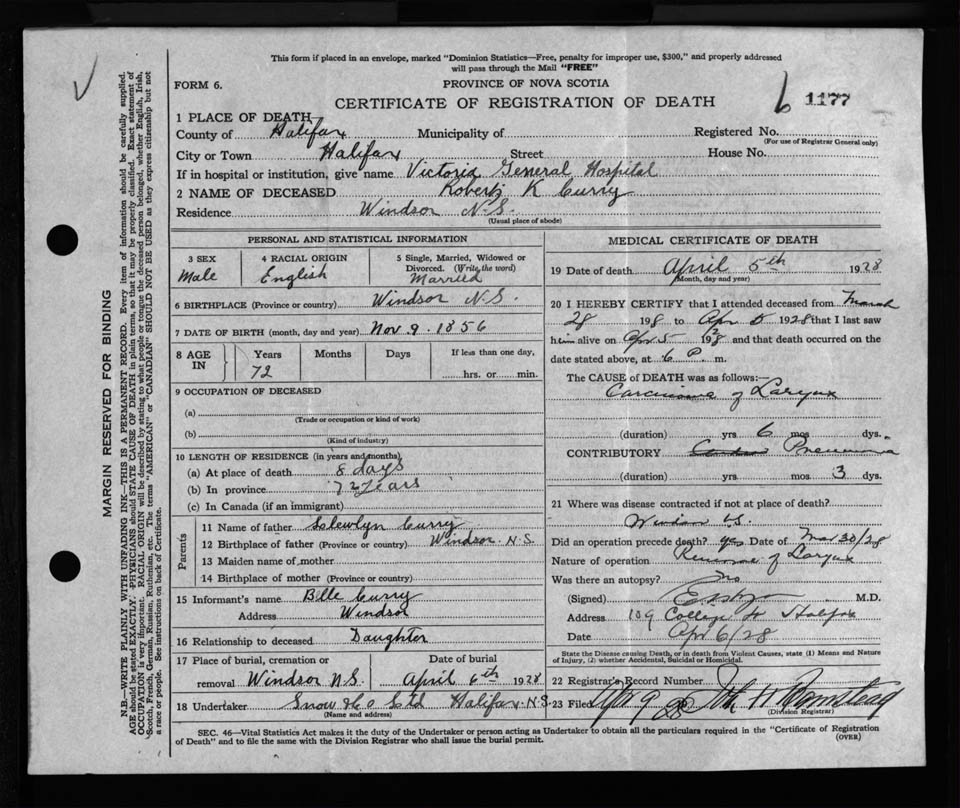 This form if placed in an envelope, marked "Dominion Statistics—Free, penalty for improper use, $300," and properly addressed
will pass through the Mail "FREE"
FORM 6.
PROVINCE OF NOVA SCOTIA
CERTIFICATE OF REGISTRATION OF DEATH
6 1177
1 PLACE OF DEATH
County of Halifax Municipality of Registered No.
(For use of Registrar General only)
City or Town Halifax Street House No.
If in hospital or institution, give name Victoria General Hospital
2 NAME OF DECEASED Robert K Curry
Residence Windsor N.S.
(Usual place of abode)
PERSONAL AND STATISTICAL INFORMATION
3 SEX
Male
4 RACIAL ORIGIN
English
5 Single, Married, Widowed or
Divorced. (Write the word)
Married
6 BIRTHPLACE (Province or country) Windsor N.S.
7 DATE OF BIRTH (month, day and year) Nov 9. 1856
8 AGE
IN
Years
72
Months
Days
If less than one day,
hrs. or min.
9 OCCUPATION OF DECEASED
(a)
(Trade or occupation or kind of work)
(b)
(Kind of industry)
10 LENGTH OF RESIDENCE (in years and months)
(a) At place of death 8 days
(b) In province 72 years
(c) In Canada (if an immigrant)
Parents
11 Name of father Curry
12 Birthplace of father (Province or country) Windsor N.S.
13 Maiden name of mother
14 Birthplace of mother (Province or country)
15 Informant's name Curry
Address Windsor
16 Relationship to deceased Daughter
17 Place of burial, cremation or
removal Windsor N.S.
Date of burial
April 6th 1928
18 Undertaker Snow & Co Ltd Halifax N.S.
(Name and address)
MEDICAL CERTIFICATE OF DEATH
19 Date of death April 5th 1928
(Month, day and year)
20 I HEREBY CERTIFY that I attended deceased from March
28 1928 to Apr 5 1928 that I last saw
him alive on Apr 5 1928 and that death occurred on the
date stated above, at 6 P. m.
The CAUSE of DEATH was as follows:—
Carcinoma of Larynx
(duration) yrs 6 mos dys.
CONTRIBUTORY Pneumonia
(duration) yrs mos 3 dys.
21 Where was disease contracted if not at place of death?
Windsor N.S.
Did an operation precede death? yes Date of Mar 30/28
Nature of operation Removal of Larynx
Was there an autopsy? No
(Signed) M.D.
Address 109 College St Halifax
Date Apr 6/28
State the Disease causing Death, or in death from Violent Causes, state (1) Means and Nature
of Injury, (2) whether Accidental, Suicidal or Homicidal.
22 Registrar's Record Number
23 Filed Apr 9 28
(Division Registrar)
SEC. 46—Vital Statistics Act makes it the duty of the Undertaker or person acting as Undertaker to obtain all the particulars required in the "Certificate of Registration
of Death" and to file the same with the Division Registrar who shall issue the burial permit.
(OVER)
MARGIN RESERVED FOR BINDING
N.B.—WRITE PLAINLY WITH UNFADING INK—THIS IS A PERMANENT RECORD. Every item of information should be carefully supplied.
AGE should be stated EXACTLY. PHYSICIANS should STATE CAUSE OF DEATH in plain terms, so that it may be properly classified. Exact statement of
OCCUPATION is very important. RACIAL ORIGIN will be described by stating to what people or tongue the deceased person belonged, whether English, Irish,
Scotch, French, German, Russian, Ruthenian, etc. The terms "AMERICAN" or "CANADIAN" SHOULD NOT BE USED as they express citizenship but not
a race or people. See instructions on back of Certificate.